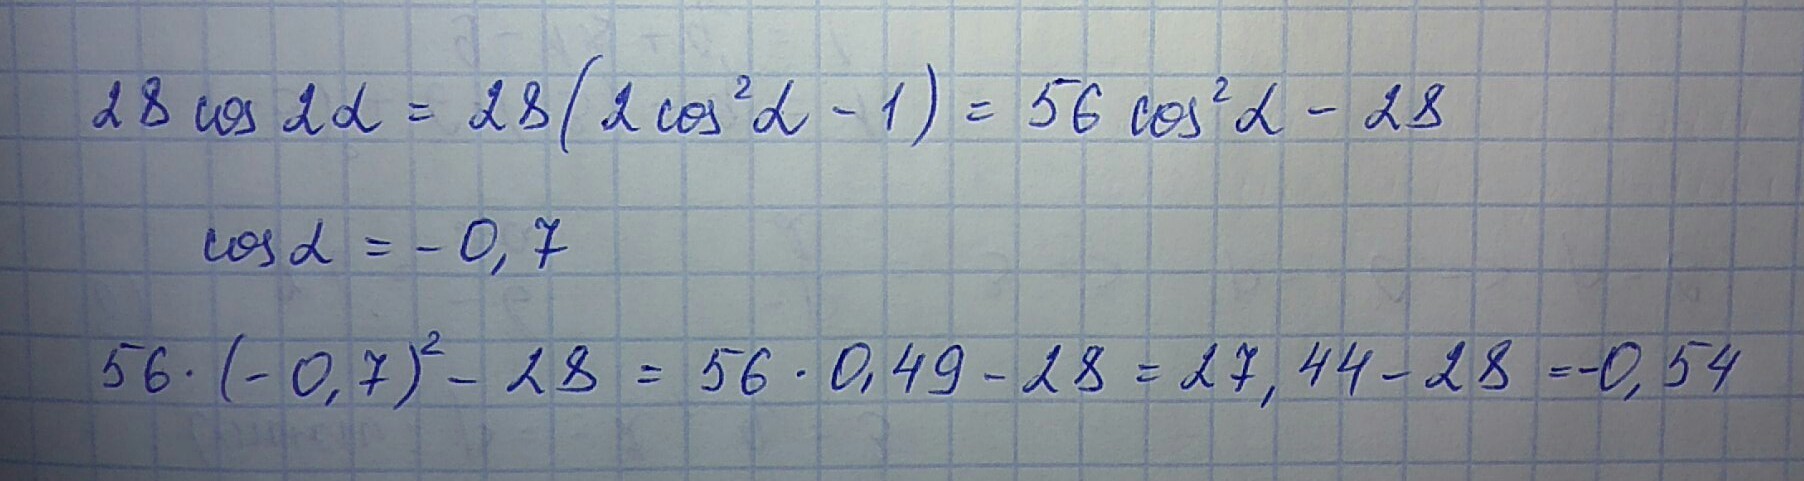 28 cos 2α = 28(2 cos²α - 1) = 56 cos²α - 28
cos α = -0,7
56·(-0,7)² - 28 = 56·0,49 - 28 = 27,44 - 28 = -0,54